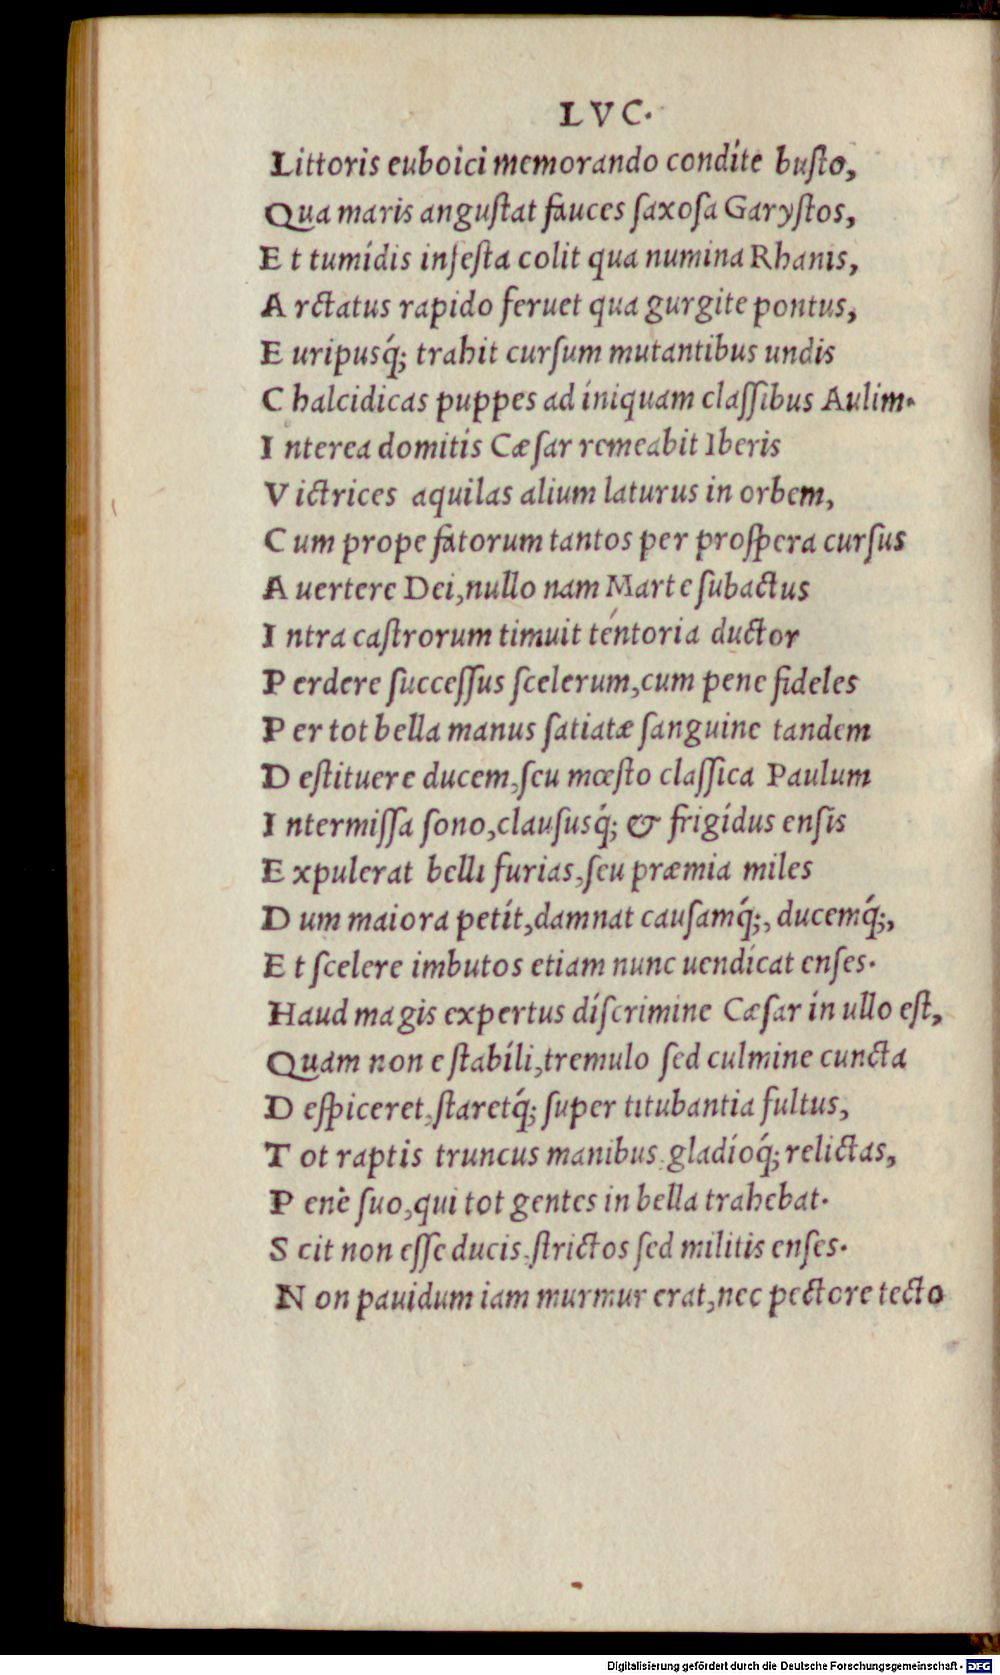 LVC.
Littoris euboici memorando condíte busto,
Qua maris angustat fauces saxosa Garystos,
E t tumídis infesta colit qua numina Rhanis,
A rctatus rapido feruet qua gurgite pontus,
E uripusq́; trahit cursum mutantibus undis
C halcidicas puppes ad íniquam classibus Aulim.
I nterea domitís Cæsar remeabit Iberis
V ictrices aquilas alium laturus in orbem,
C um prope fatorum tantos per prospera cursus
A uertere Dei, nullo nam Marte subactus
I ntra castrorum timuit téntoria ductor
P erdere successus scelerum, cum pene fideles
P er tot bella manus satiatæ sanguine tandem
D estituere ducem, seu mœsto classica Paulum
I ntermissa sono, claususq́; & frigídus ensís
E xpulerat belli furias, seu præmia miles
D um maiora petít, damnat causamq́;, ducemq́;,
E t scelere imbutos etiam nunc uendícat enses.
Haud magis expertus díscrimine Cæsar ín ullo est,
Quám non e stabíli, tremulo sed culmine cuncta
D espiceret, staretq́; super titubantia fultus,
T ot raptis truncus manibus, gladíoq́; relictas,
P enè suo, qui tot gentes in bella trahebat.
S cit non esse ducis, strictos sed militis enses.
N on pauidum iam murmur erat, nec pectore tecto
Digitalisierung gefördert durch die Deutsche Forschungsgemeinschaft - DFG